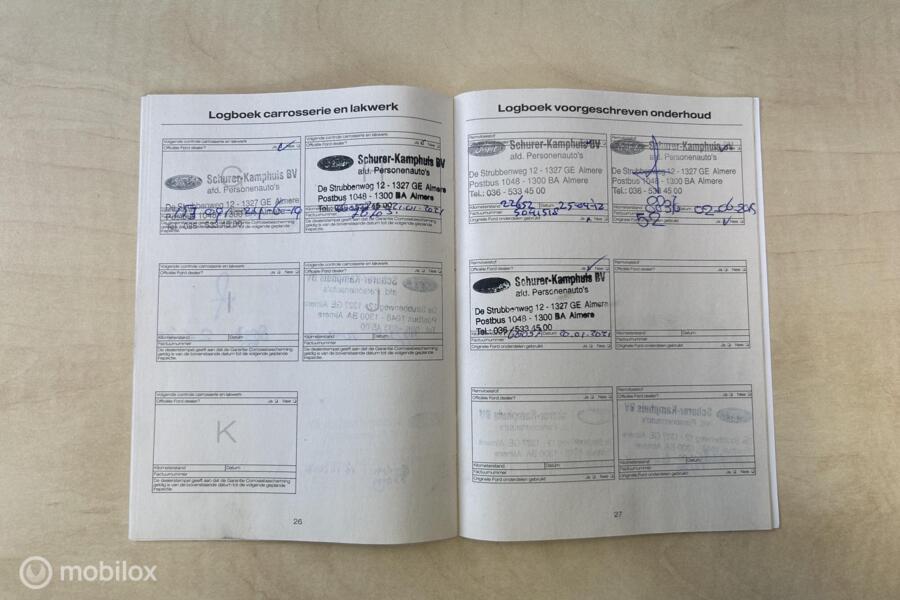 Logboek carrosserie en lakwerk
Volgende controle carrosserie en lakwerk
Officiële Ford dealer? Ja Nee
Schurer-Kamphuis BV
afd. Personenauto's
De Strubbenweg 12 - 1327 GE Almere
Postbus 1048 - 1300 BA Almere
Tel.: 036 - 533 45 00
Volgende controle carrosserie en lakwerk
Officiële Ford dealer? Ja
Ford
Schurer-Kamphuis BV
afd. Personenauto's
De Strubbenweg 12 - 1327 GE Almere
Postbus 1048 - 1300 BA Almere
Tel.: 036 - 533 45 00
21.01.2021
Volgende controle carrosserie en lakwerk
Officiële Ford dealer? Ja Nee
I
Kilometerstand Datum
Factuurnummer
De dealerstempel geeft aan dat de Garantie Corrosiebescherming
geldig is van de bovenstaande datum tot de volgende geplande
inspectie.
Volgende controle carrosserie en lakwerk
Officiële Ford dealer? Ja Nee
J
Kilometerstand Datum
Factuurnummer
De dealerstempel geeft aan dat de Garantie Corrosiebescherming
geldig is van de bovenstaande datum tot de volgende geplande
inspectie.
Volgende controle carrosserie en lakwerk
Officiële Ford dealer? Ja Nee
K
Kilometerstand Datum
Factuurnummer
De dealerstempel geeft aan dat de Garantie Corrosiebescherming
geldig is van de bovenstaande datum tot de volgende geplande
inspectie.
26
Logboek voorgeschreven onderhoud
Remvloeistof
Officiële Ford dealer?
Schurer-Kamphuis BV
afd. Personenauto's
De Strubbenweg 12 - 1327 GE Almere
Postbus 1048 - 1300 BA Almere
Tel.: 036 - 533 45 00
Kilometerstand Datum
Factuurnummer
Originele Ford onderdelen gebruikt Ja Nee
Remvloeistof
Schurer-Kamphuis
afd. Personenauto's
De Strubbenweg 12 - 1327 GE Almere
Postbus 1048 - 1300 BA Almere
Tel.: 036 - 533 45 00
Ja Nee
Remvloeistof
Officiële Ford dealer? Ja Nee
Schurer-Kamphuis BV
afd. Personenauto's
De Strubbenweg 12 - 1327 GE Almere
Postbus 1048 - 1300 BA Almere
Tel.: 036 / 533 45 00
Datum 20.01.2021
Factuurnummer
Originele Ford onderdelen gebruikt Ja Nee
Remvloeistof
Officiële Ford dealer? Ja Nee
Kilometerstand Datum
Factuurnummer
Originele Ford onderdelen gebruikt Ja Nee
Remvloeistof
Officiële Ford dealer? Ja Nee
Kilometerstand Datum
Factuurnummer
Originele Ford onderdelen gebruikt Ja Nee
Remvloeistof
Officiële Ford dealer? Ja Nee
Kilometerstand Datum
Factuurnummer
Originele Ford onderdelen gebruikt Ja Nee
27
mobilox